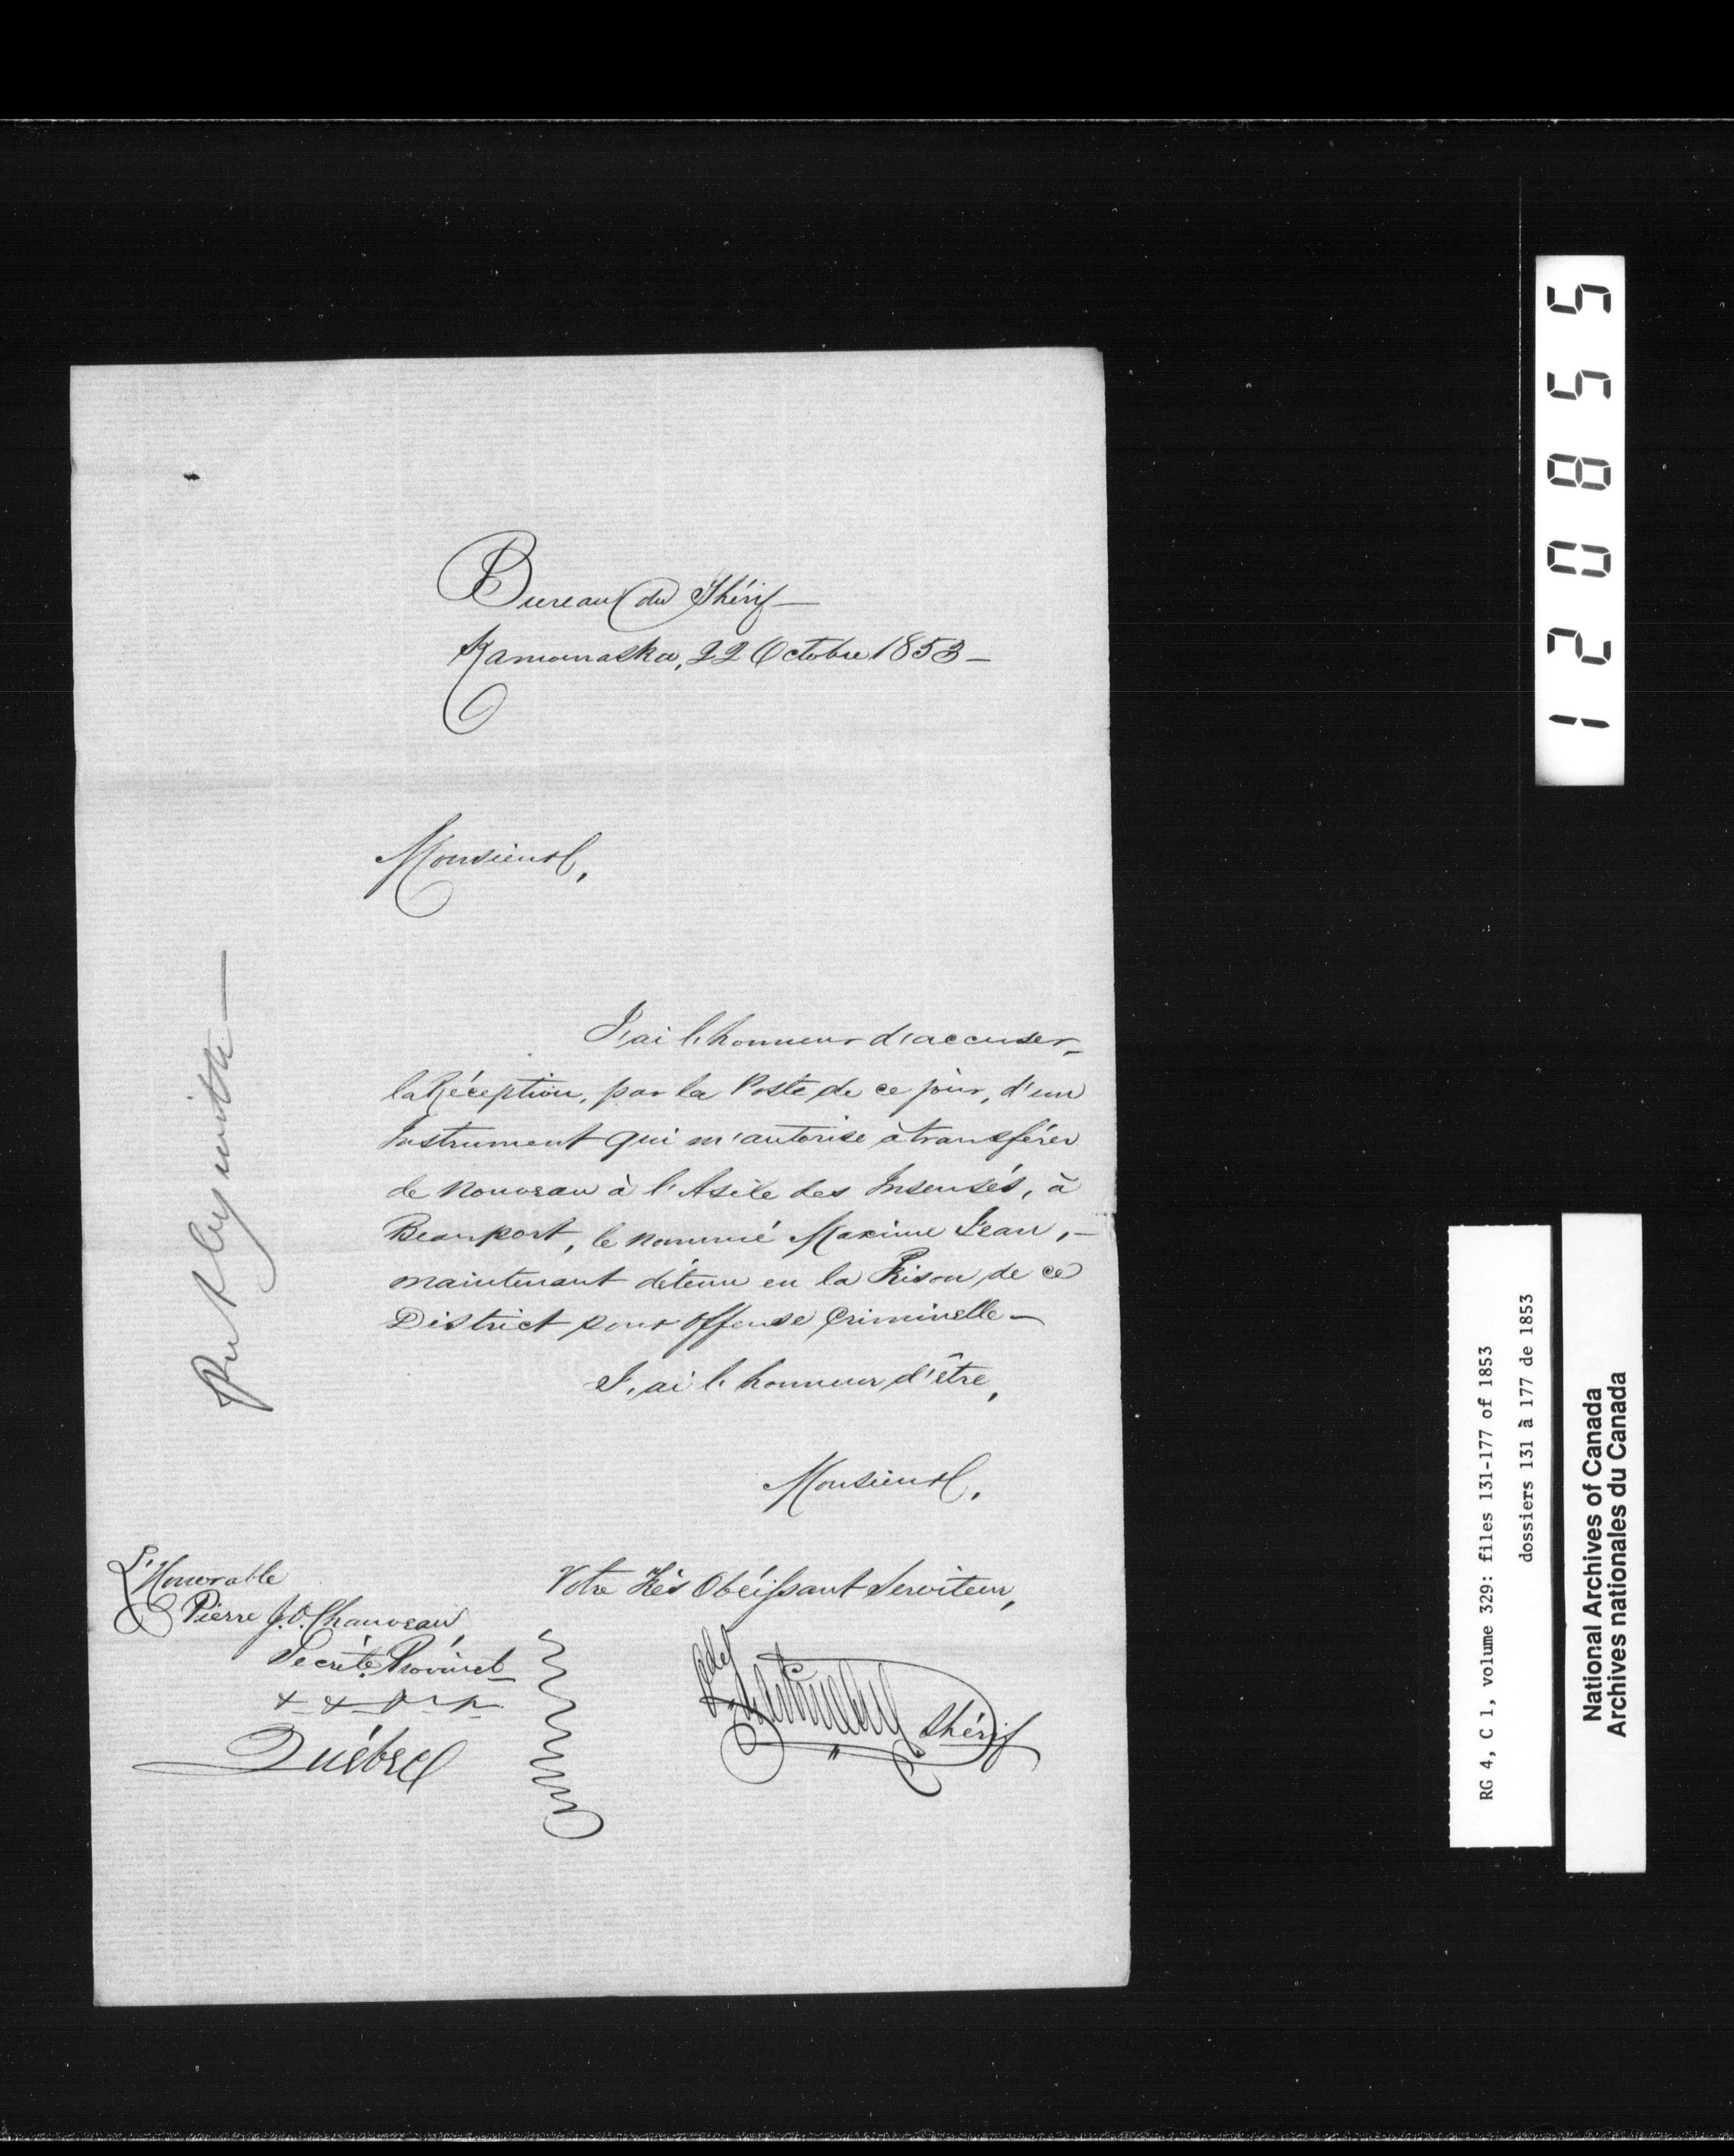 Bureau du Shérif —
Kamouraska, 22 Octobre 1853 —
Monsieur,
J'ai l'honneur d'accuser
la Réception, par la Poste de ce jour, d'un
Instrument qui m'autorise à transférer
de nouveau à l'Asile des Insensés, à
Beauport, le nommé Maxime Jean, —
maintenant détenu en la Prison de ce
District pour Offense Criminelle —
J'ai l'honneur d'être,
Monsieur,
Votre Très Obéissant Serviteur,
Shérif
L'Honorable
Pierre J. O. Chauveau,
Secrét. Provincl
Québec
Put by
12085 5
RG 4, C 1, volume 329: files 131-177 of 1853
dossiers 131 à 177 de 1853
National Archives of Canada
Archives nationales du Canada